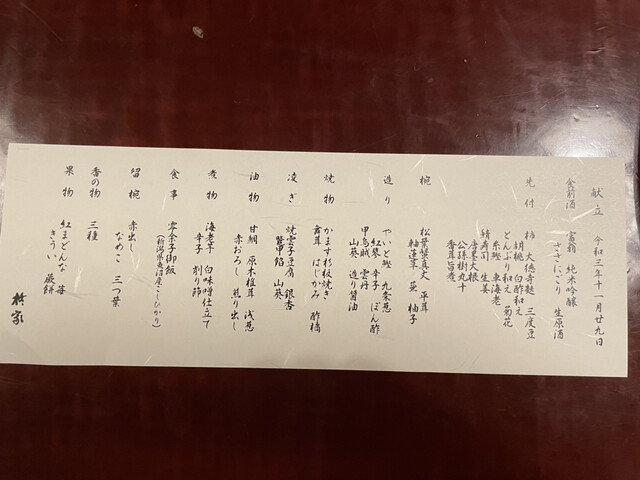 献立 令和三年十一月廿九日
食前酒 富翁 純米吟醸
ささにごり 生原酒
先付 柿 大徳寺麩 三度豆
胡麻白酢和え
とんぶり和え 菊花
糸鰹 車海老
鯖寿司 生姜
唐墨大根
公孫樹丸十
香茸旨煮
椀 松葉蟹真丈 平茸
軸蓮草 柚子
造り やいと鰹 九条葱
紅葉 辛子 ぽん酢
甲烏賊 雲丹
山葵 造り醤油
焼物 かます杉板焼き
舞茸 はじかみ 酢橘
凌ぎ 焼雲子豆腐 銀杏
鼈甲餡 山葵
油物 甘鯛 原木椎茸 浅葱
赤おろし 煎り出し
煮物 海老芋 白味噌仕立て
辛子 削り節
食事 零余子御飯
(新潟県魚沼産こしひかり)
留椀 赤出し
なめこ 三つ葉
香の物 三種
果物 紅まどんな 苺
きうい 蕨餅